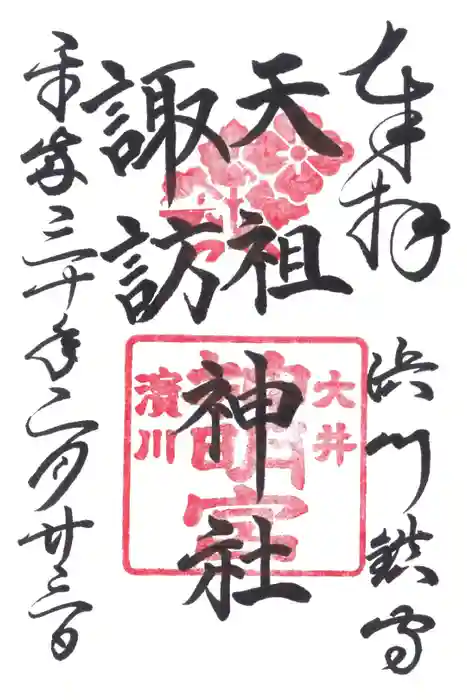 奉拝
浜川鎮守
天祖
諏訪
神社
大井
濱川
神明宮
平成三十年二月廿三日